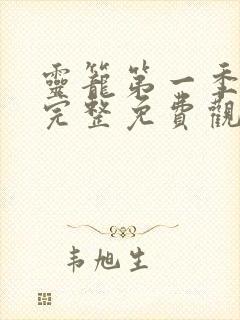 靈籠第一季
完整免費觀
韦旭生